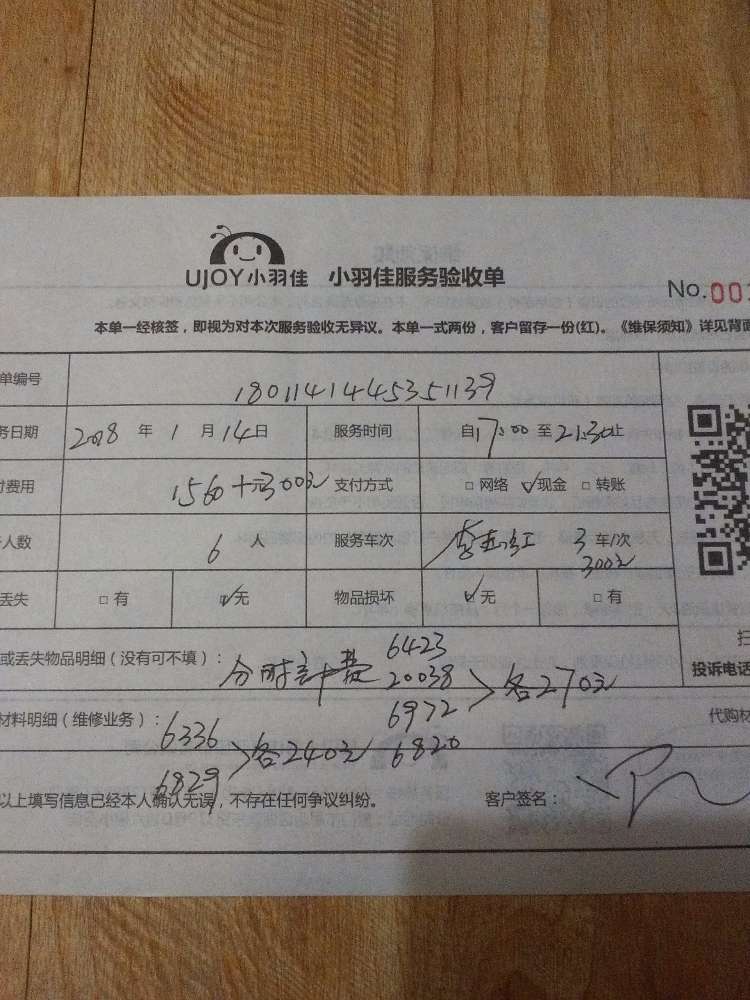 UJOY小羽佳 小羽佳服务验收单
No.00
本单一经核签，即视为对本次服务验收无异议。本单一式两份，客户留存一份(红)。《维保须知》详见背面
单编号 1801141445351139
务日期 2018 年 1 月 14 日 服务时间 自17:00 至 21:30止
付费用 1560 300元 支付方式 □ 网络 ☑现金 □ 转账
人数 6 人 服务车次 3 车/次
300元
丢失 □ 有 ☑无 物品损坏 ☑无 □ 有
或丢失物品明细（没有可不填）： 分时计费 6423
20038 各270元
投诉电话
6972
材料明细（维修业务）： 6336 各240元 6820
代购材
6829
以上填写信息已经本人确认无误，不存在任何争议纠纷。 客户签名：